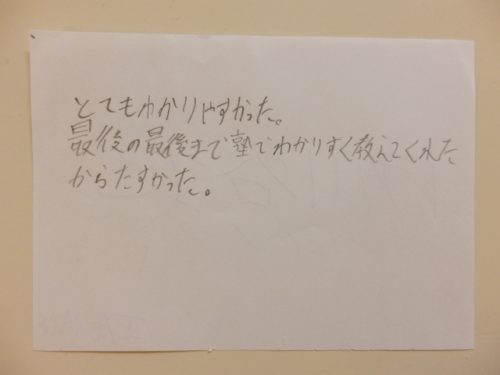 とてもわかりやすかった。
最後の最後まで塾でわかりすく教えてくれた
からたすかった。